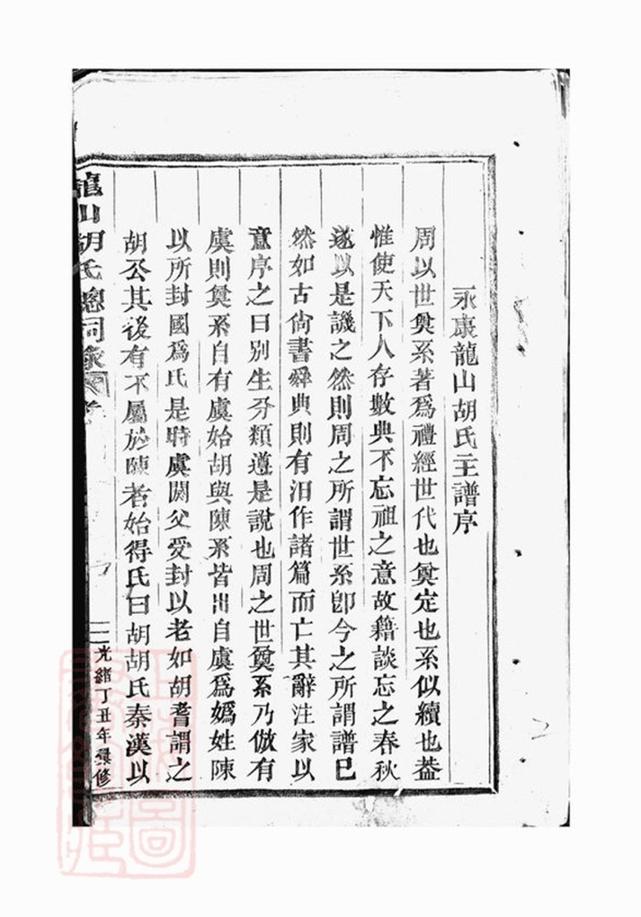 永康龍山胡氏主譜序
周以世奠系著爲禮經世代也奠定也系似續也葢
惟使天下人存數典不忘祖之意故籍談忘之春秋
遂以是譏之然則周之所謂世系卽今之所謂譜已
然如古尙書舜典則有汨作諸篇而亡其辭注家以
意序之曰别生分類遵是說也周之世奠系乃倣有
虞則奠系自有虞始胡與陳系皆出自虞爲嬀姓陳
以所封國爲氏是時虞閼父受封以老如胡耆謂之
胡公其後有不屬於陳者始得氏曰胡胡氏秦漢以
龍山胡氏總祠
光緒丁丑年彙修